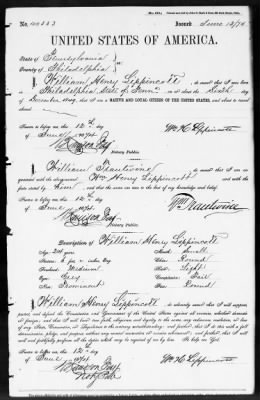 Issued June 13/74
UNITED STATES OF AMERICA.
State of Pennsylvania
County of Philadelphia } ss.
I, William Henry Lippincott do swear that I was born in
Philadelphia, State of Penn. on or about the Sixth day
of December that I am a NATIVE AND LOYAL CITIZEN OF THE UNITED STATES, and about to travel
abroad.
Sworn to before me this 12th day
of June 1874 Wm H Lippincott
Notary Public.
I, William Trautwine do swear that I am ac-
quainted with the above-named Wm Henry Lippincott and with the
facts stated by him and that the same are true to the best of my knowledge and belief.
Sworn to before me this 12th day
of June 1874 Wm Trautwine
Notary Public.
Description of William Henry Lippincott
Age: years Mouth: Small
Stature: feet inches, Eng. Chin: Round
Forehead: Medium Hair: Light
Eyes: Grey Complexion: Fair
Nose: Prominent Face: Round
I, William Henry Lippincott do solemnly swear that I will support,
protect, and defend the Constitution and Government of the United States against all enemies, whether domestic
or foreign; and that I will bear true faith, allegiance and loyalty to the same, any ordinance, resolution, or law
of any State, Convention, or Legislature to the contrary notwithstanding; and further, that I do this with a full
determination, pledge, and purpose, without any mental reservation or evasion whatsoever; and further, that I will
well and faithfully perform all the duties which may be required of me by law: So help me God.
Sworn to before me this 12th day
of June 1874 Wm H Lippincott